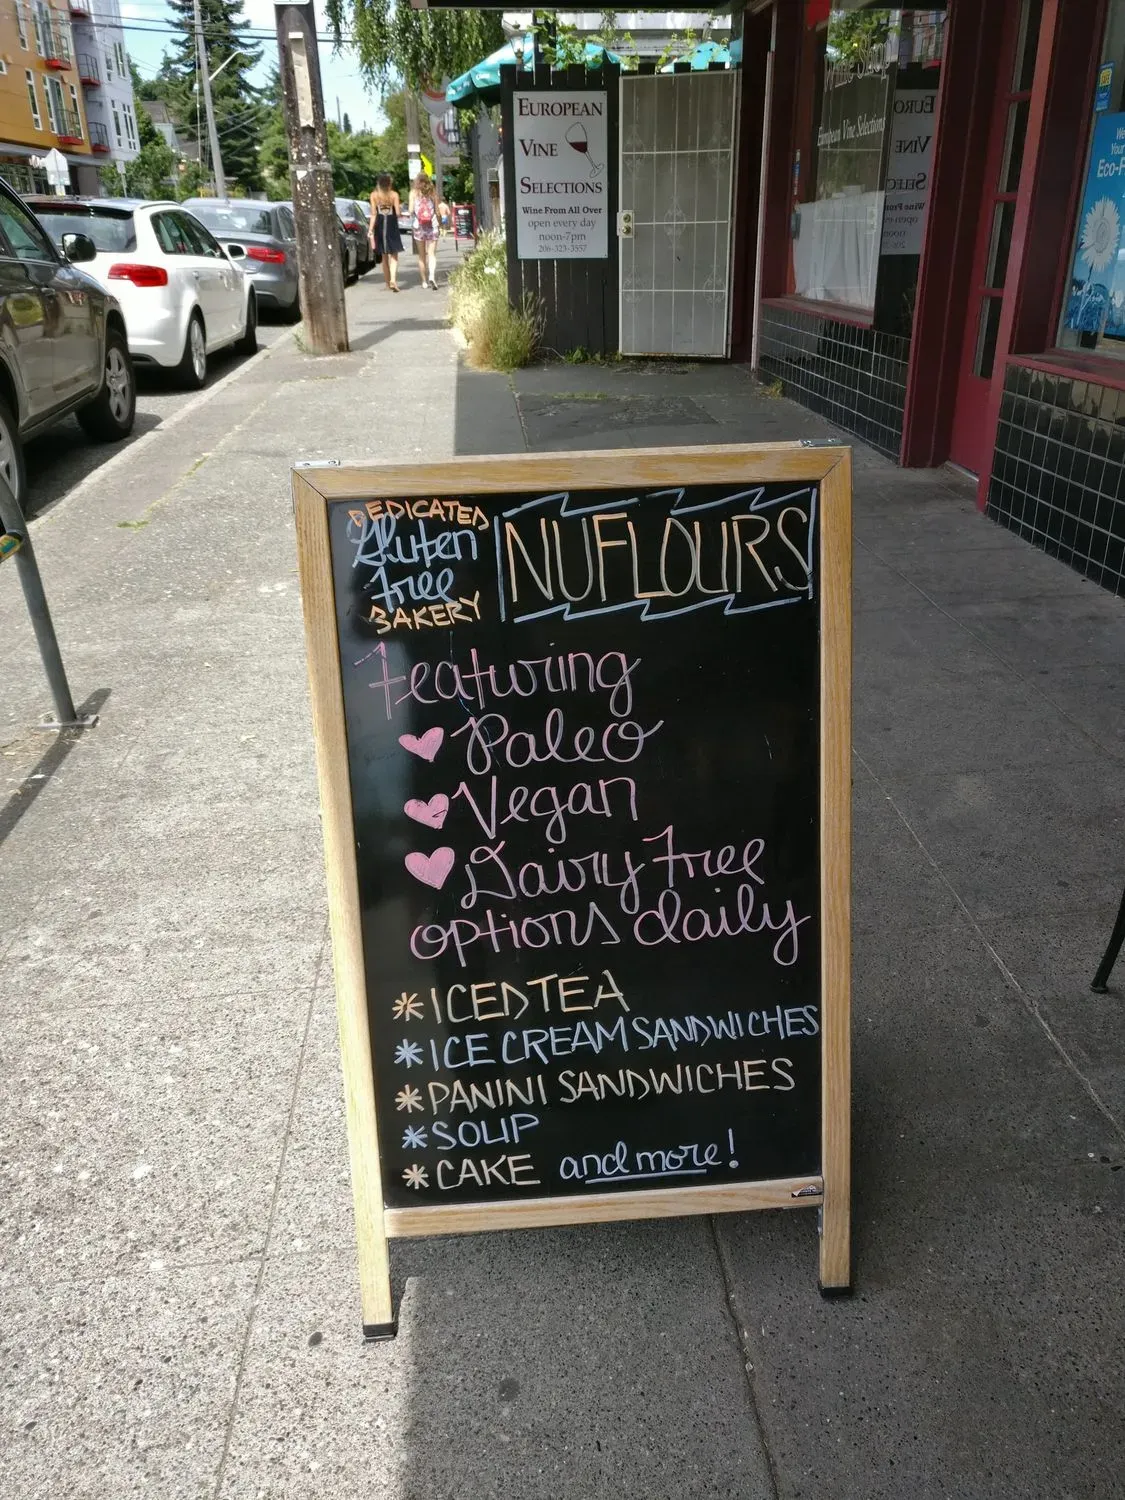 EUROPEAN
VINE
SELECTIONS
Wine From All Over
open every day
noon-7pm
206-323-3557
Wine Shop
European Vine Selections
DEDICATED
Gluten
Free
BAKERY
NUFLOURS
Featuring
Paleo
Vegan
Dairy Free
options daily
*ICED TEA
*ICE CREAM SANDWICHES
*PANINI SANDWICHES
*SOUP
*CAKE and more!